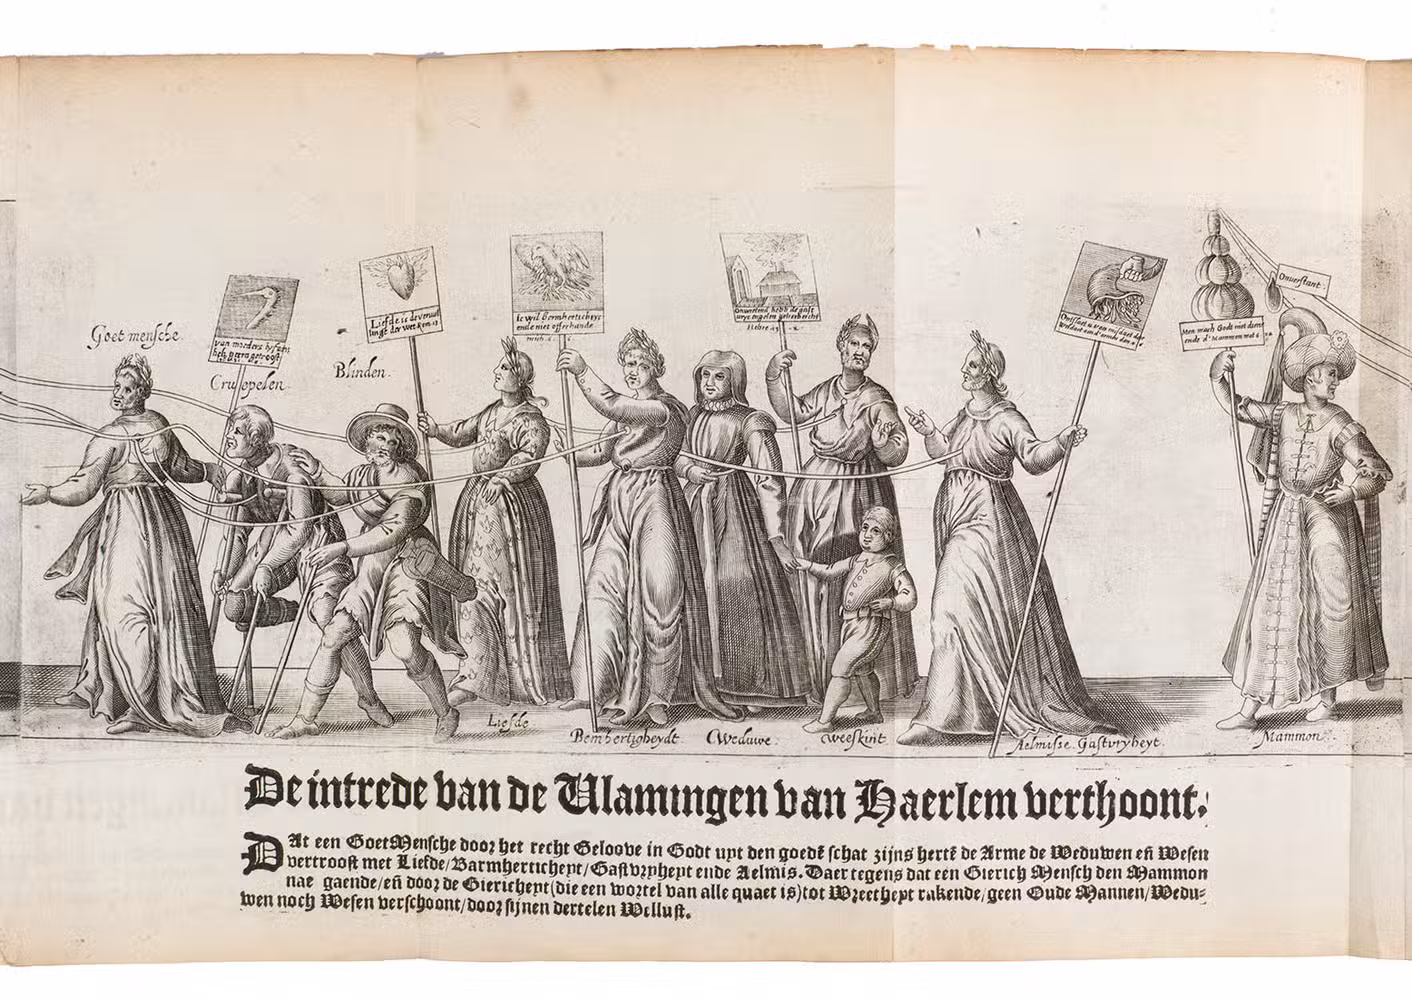 Goet mensche.
van moeders lyf aen
heb
Crupelen.
Blinden.
Liefde is de vervul
linge der wet Rom. 13
Ic wil bermhertichey
ende niet offerhande
Onwetend hebbē de gast
vrye engelen geherbercht
Hebre 13 2
Men mach Godt niet dienē
ende dē Mammon mat 6 24
Onverstant.
Liefde.
Bemhertigheydt.
Weduwe.
Weeskint
Aelmisse. Gastvryheyt.
Mammon.
De intrede van de Vlamingen van Haerlem verthoont.
DAt een GoetMensche door het recht Geloove in Godt uyt den goedē schat zijns hertē de Arme de Weduwen eñ Wesen
vertroost met Liefde/Barmhertichept/Gastvryhept ende Aelmis. Daer tegens dat een Gierich Mensch den Mammon
nae gaende/eñ door de Gierichept (die een wortel van alle quaet is) tot Wreethept rakende/geen Oude Mannen/Wedu-
wen noch Wesen verschoont/door sijnen dertelen Wellust.